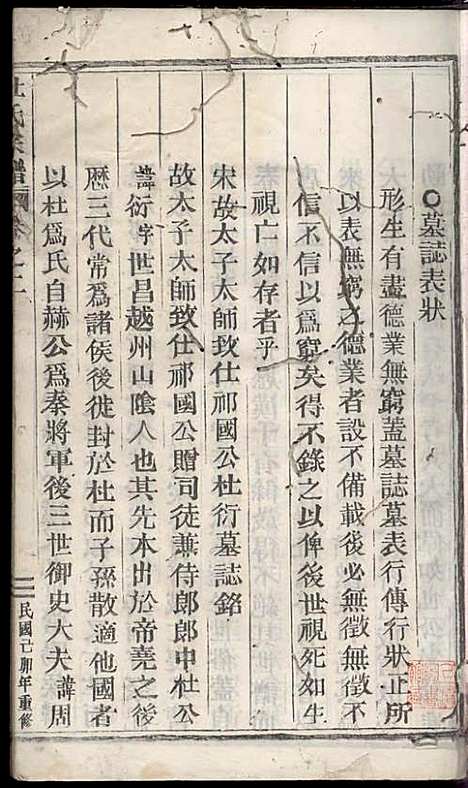 墓誌表狀
形生有盡德業無窮蓋墓誌墓表行傳行狀正所
以表無窮之德業者設不備載後必無徵無徵不
信不信以為窮矣得不錄之以俾後世視死如生
視亡如存者乎
宋故太子太師致仕祁國公杜衍墓誌銘
故太子太師致仕祁國公贈司徒兼侍郎郎中杜公
諱衍字世昌越州山陰人也其先本出於帝堯之後
厯三代常爲諸侯後徙封於杜而子孫散適他國者
以杜爲氏自赫公爲秦將軍後三世御史大夫諱周
杜氏家譜 卷之二
二
民國己卯年重修